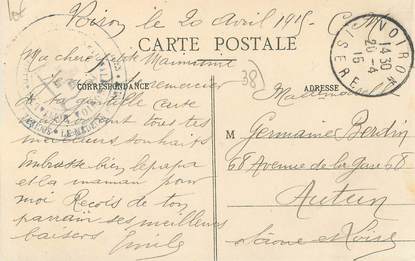 le 20 Avril 1915
CARTE POSTALE
Ma chère petite
CORRESPONDANCE
remercier
de ta gentille carte
tes
meilleurs souhaits
Embrasse bien le papa
et la maman pour
moi Reçois de ton
parrain ses meilleurs
baisers Emile
38
ADRESSE
Mademoiselle
M Germaine Berdin
68 Avenue de la Gare 68
Autun
Saône et Loire
VOIRON
14 30
20 -4
15
ISERE